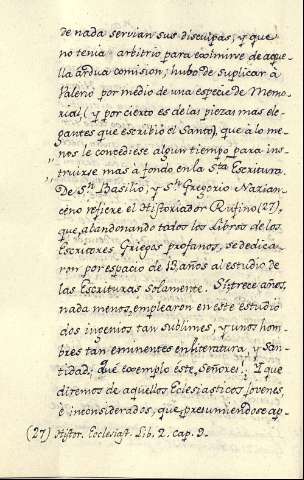 de nada servian sus disculpas, y que
no tenia arbitrio para eximirse de aque-
lla ardua comision; hubo de suplicar à
Valerio por medio de una especie de Memo-
rial, (y por cierto es de las piezas mas ele-
gantes que escribió el Santo), que à lo me-
nos le concediese algun tiempo para ins-
truirse mas à fondo en la Sta. Escritura.
De Sn. Basilio, y Sn. Gregorio Nazian-
ceno refiere el Historiador Rufino (27),
que, abandonando todos los Libros de los
Escritores Griegos profanos, se dedica-
ron por espacio de 13, años al estudio de
las Escrituras solamente. Sí: trece años,
nada menos, emplearon en este estudio
dos ingenios tan sublimes, y unos hom-
bres tan eminentes en literatura, y San-
tidad; què exemplo este, Señores! Y que
diremos de aquellos Eclesiasticos Jovenes,
è inconsiderados, que, presumiendose ap-
(27) Histor. Ecclesiast. Lib. 2. cap. 9.